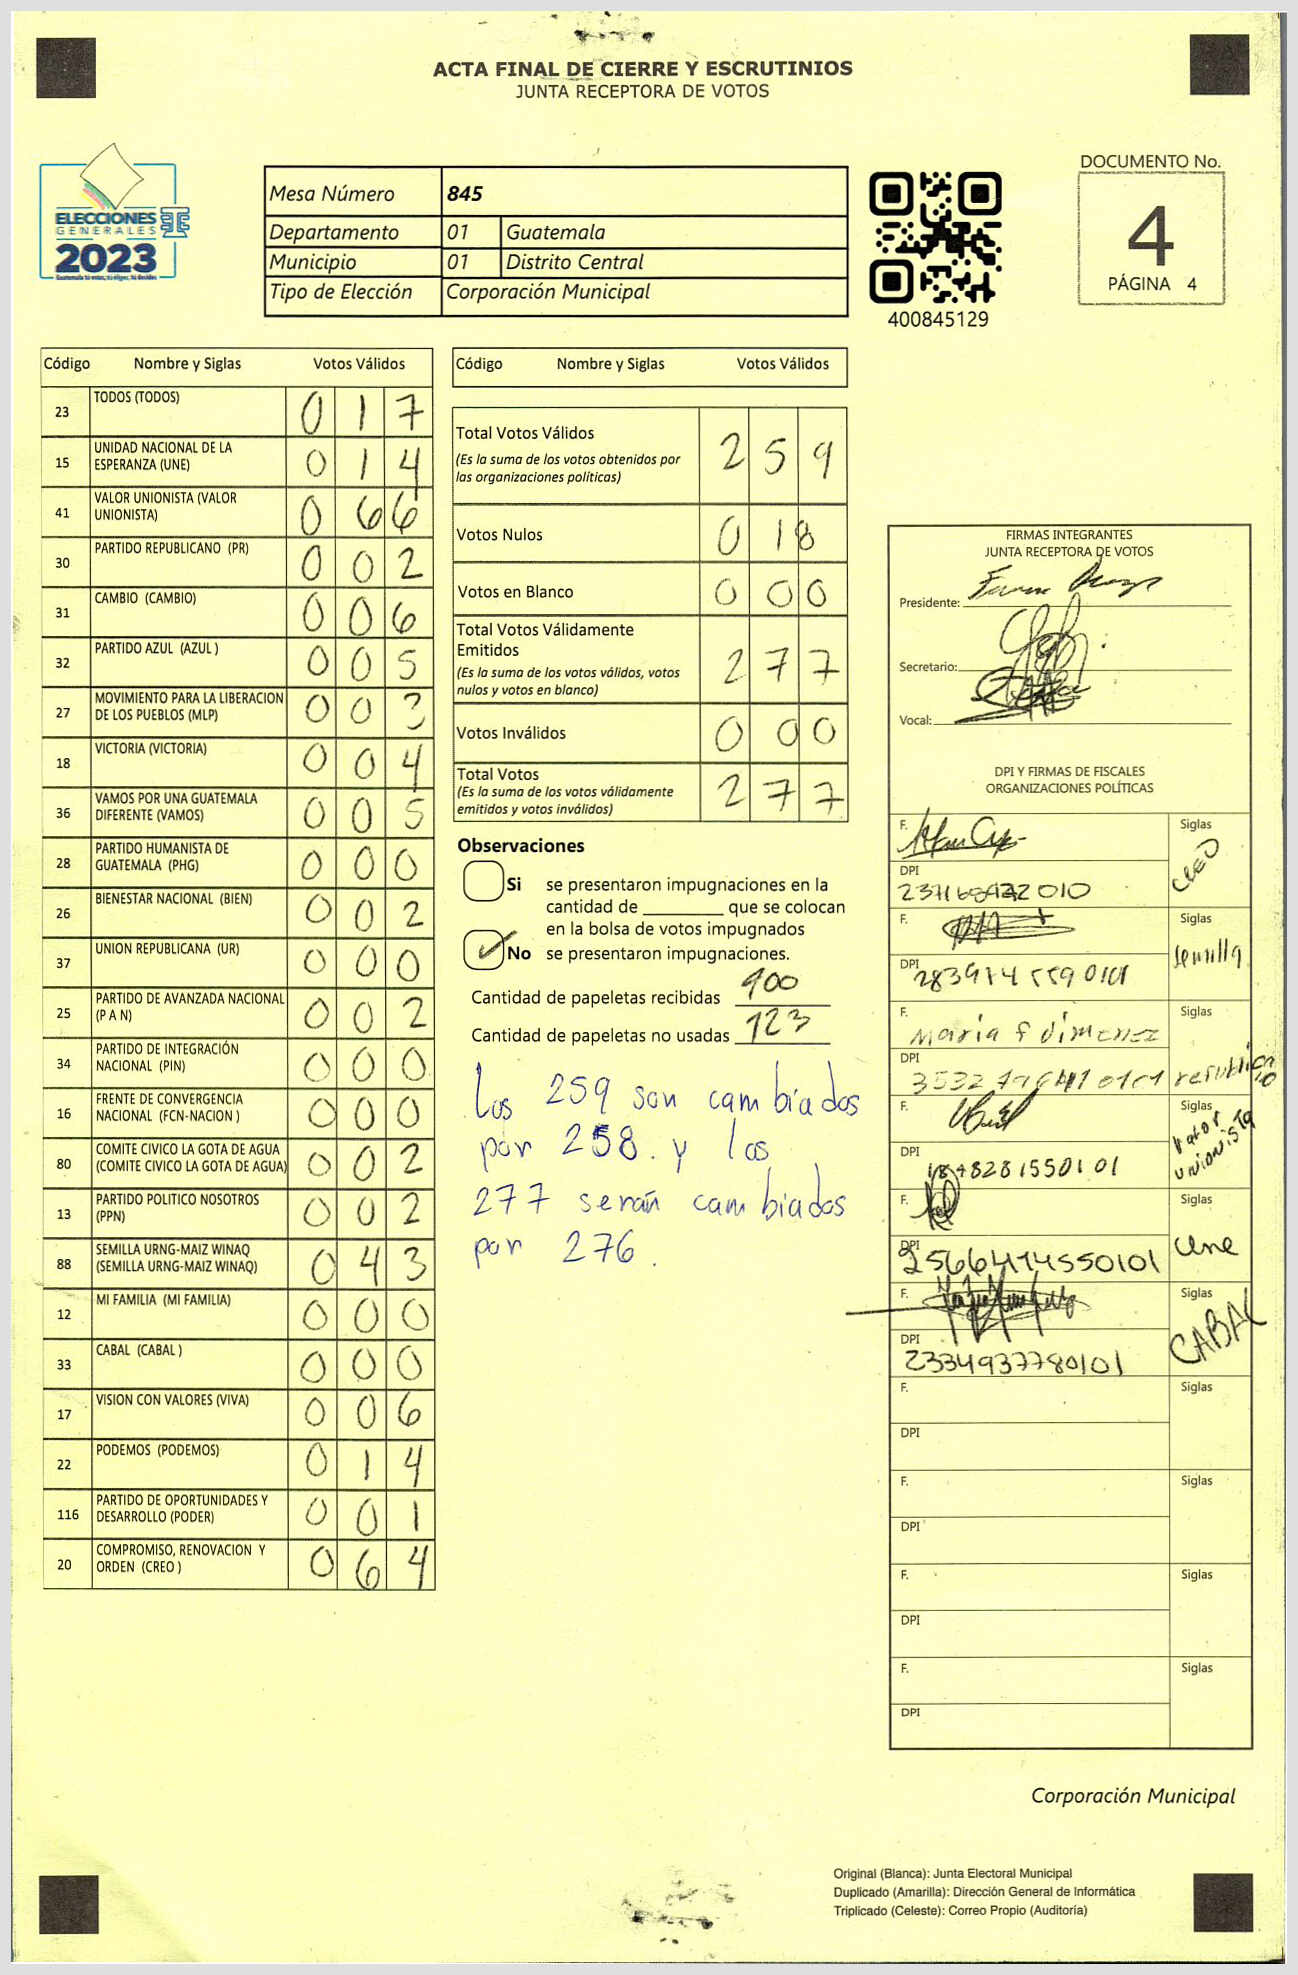 ACTA FINAL DE CIERRE Y ESCRUTINIOS
JUNTA RECEPTORA DE VOTOS
ELECCIONES
GENERALES
2023
Mesa Número 845
Departamento 01 Guatemala
Municipio 01 Distrito Central
Tipo de Elección Corporación Municipal
400845129
DOCUMENTO No.
4
PÁGINA 4
Código Nombre y Siglas Votos Válidos
23 TODOS (TODOS) 0 1 7
15 UNIDAD NACIONAL DE LA
ESPERANZA (UNE) 0 1 4
41 VALOR UNIONISTA (VALOR
UNIONISTA) 0 6 6
30 PARTIDO REPUBLICANO (PR) 0 0 2
31 CAMBIO (CAMBIO) 0 0 6
32 PARTIDO AZUL (AZUL ) 0 0 5
27 MOVIMIENTO PARA LA LIBERACION
DE LOS PUEBLOS (MLP) 0 0 3
18 VICTORIA (VICTORIA) 0 0 4
36 VAMOS POR UNA GUATEMALA
DIFERENTE (VAMOS) 0 0 5
28 PARTIDO HUMANISTA DE
GUATEMALA (PHG) 0 0 0
26 BIENESTAR NACIONAL (BIEN) 0 0 2
37 UNION REPUBLICANA (UR) 0 0 0
25 PARTIDO DE AVANZADA NACIONAL
(P A N) 0 0 2
34 PARTIDO DE INTEGRACIÓN
NACIONAL (PIN) 0 0 0
16 FRENTE DE CONVERGENCIA
NACIONAL (FCN-NACION ) 0 0 0
80 COMITE CIVICO LA GOTA DE AGUA
(COMITE CIVICO LA GOTA DE AGUA) 0 0 2
13 PARTIDO POLITICO NOSOTROS
(PPN) 0 0 2
88 SEMILLA URNG-MAIZ WINAQ
(SEMILLA URNG-MAIZ WINAQ) 0 4 3
12 MI FAMILIA (MI FAMILIA) 0 0 0
33 CABAL (CABAL ) 0 0 0
17 VISION CON VALORES (VIVA) 0 0 6
22 PODEMOS (PODEMOS) 0 1 4
116 PARTIDO DE OPORTUNIDADES Y
DESARROLLO (PODER) 0 0 1
20 COMPROMISO, RENOVACION Y
ORDEN (CREO ) 0 6 4
Código Nombre y Siglas Votos Válidos
Total Votos Válidos 2 5 9
(Es la suma de los votos obtenidos por
las organizaciones políticas)
Votos Nulos 0 1 8
Votos en Blanco 0 0 0
Total Votos Válidamente
Emitidos 2 7 7
(Es la suma de los votos válidos, votos
nulos y votos en blanco)
Votos Inválidos 0 0 0
Total Votos 2 7 7
(Es la suma de los votos válidamente
emitidos y votos inválidos)
Observaciones
Si se presentaron impugnaciones en la
cantidad de ________ que se colocan
en la bolsa de votos impugnados
No se presentaron impugnaciones.
Cantidad de papeletas recibidas 400
Cantidad de papeletas no usadas 123
Los 259 son cambiados
por 258. y los
277 serán cambiados
por 276.
FIRMAS INTEGRANTES
JUNTA RECEPTORA DE VOTOS
Presidente:
Secretario:
Vocal:
DPI Y FIRMAS DE FISCALES
ORGANIZACIONES POLÍTICAS
F. Siglas
CREO
DPI
F. Siglas
Semilla
DPI
F. Maria F Jimenez Siglas
DPI
republicano
F. Siglas
Valor
Unionista
DPI
F. Siglas
Une
DPI 2566414550101
F. Siglas
CABAL
DPI
2334937780101
F. Siglas
DPI
F. Siglas
DPI
F. Siglas
DPI
F. Siglas
DPI
Corporación Municipal
Original (Blanca): Junta Electoral Municipal
Duplicado (Amarilla): Dirección General de Informática
Triplicado (Celeste): Correo Propio (Auditoría)